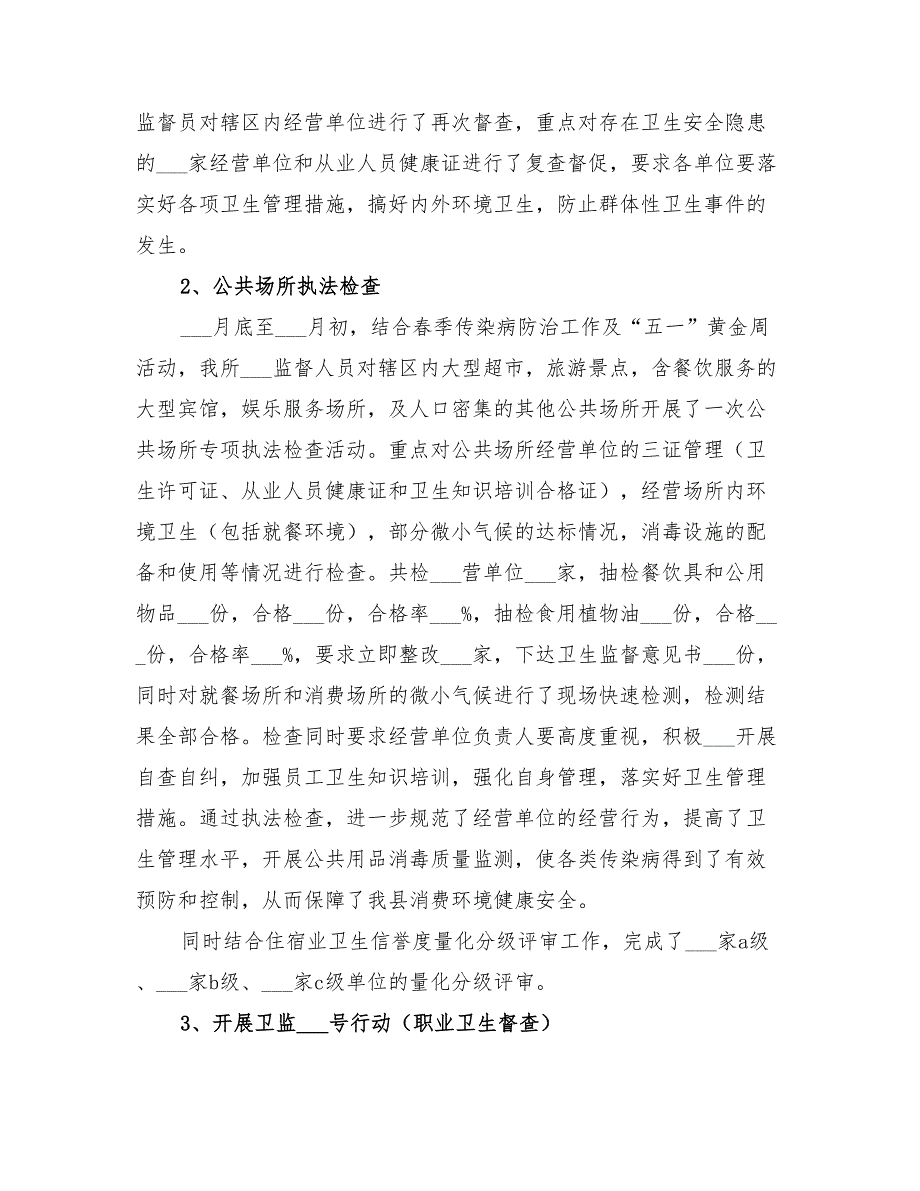 监督员对辖区内经营单位进行了再次督查，重点对存在卫生安全隐患
的___家经营单位和从业人员健康证进行了复查督促，要求各单位要落
实好各项卫生管理措施，搞好内外环境卫生，防止群体性卫生事件的
发生。
2、公共场所执法检查
___月底至___月初，结合春季传染病防治工作及“五一”黄金周
活动，我所___监督人员对辖区内大型超市，旅游景点，含餐饮服务的
大型宾馆，娱乐服务场所，及人口密集的其他公共场所开展了一次公
共场所专项执法检查活动。重点对公共场所经营单位的三证管理（卫
生许可证、从业人员健康证和卫生知识培训合格证），经营场所内环
境卫生（包括就餐环境），部分微小气候的达标情况，消毒设施的配
备和使用等情况进行检查。共检___营单位___家，抽检餐饮具和公用
物品___份，合格___份，合格率___%，抽检食用植物油___份，合格__
_份，合格率___%，要求立即整改___家，下达卫生监督意见书___份，
同时对就餐场所和消费场所的微小气候进行了现场快速检测，检测结
果全部合格。检查同时要求经营单位负责人要高度重视，积极___开展
自查自纠，加强员工卫生知识培训，强化自身管理，落实好卫生管理
措施。通过执法检查，进一步规范了经营单位的经营行为，提高了卫
生管理水平，开展公共用品消毒质量监测，使各类传染病得到了有效
预防和控制，从而保障了我县消费环境健康安全。
同时结合住宿业卫生信誉度量化分级评审工作，完成了___家a级
、___家b级、___家c级单位的量化分级评审。
3、开展卫监___号行动（职业卫生督查）